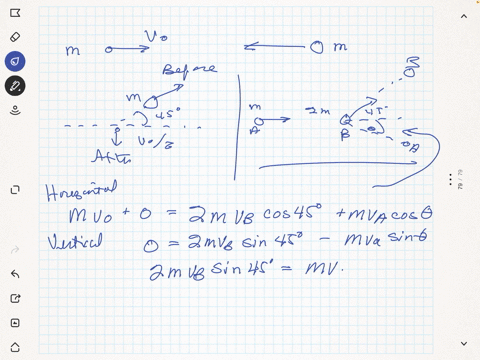 m Vo m
Before
m
45°
Vo/2
After
m
A
2m
B
B
45°
θ
A
Horizontal
mVo + 0 = 2mVB cos45° + mVA cosθ
Vertical 0 = 2mVB sin 45° - mVa sinθ
2mVB sin45° = mV.
79 / 79